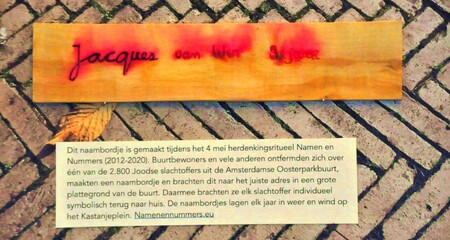 Jacques van
Dit naambordje is gemaakt tijdens het 4 mei herdenkingsritueel Namen en
Nummers (2012-2020). Buurtbewoners en vele anderen ontfermden zich over
één van de 2.800 Joodse slachtoffers uit de Amsterdamse Oosterparkbuurt,
maakten een naambordje en brachten dit naar het juiste adres in een grote
plattegrond van de buurt. Daarmee brachten ze elk slachtoffer individueel
symbolisch terug naar huis. De naambordjes lagen elk jaar in weer en wind op
het Kastanjeplein. Namenennummers.eu